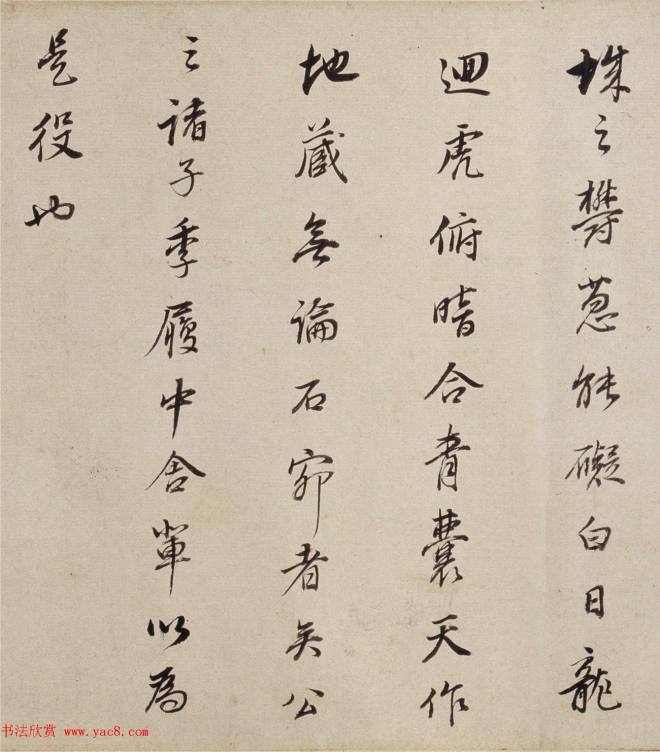 株之鬱葱能礙白日龍
迴虎俯暗合青囊天作
地藏無論石窌者矣公
之諸子季履中舍軰以為
是役也
书法欣赏 www.yac8.com